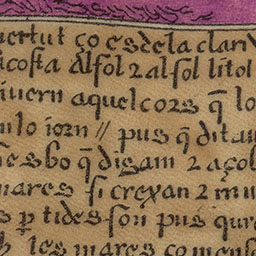 vertut ço es de la clari
icosta al sol ⁊ al sol li tol
ivern aquel cors q̄ lo
n lo iorn // pus q̄ dita
es bo q̄ digam ⁊ açol
mares si crexan ⁊ mu
s ꝑtides son pus que
les mares comens